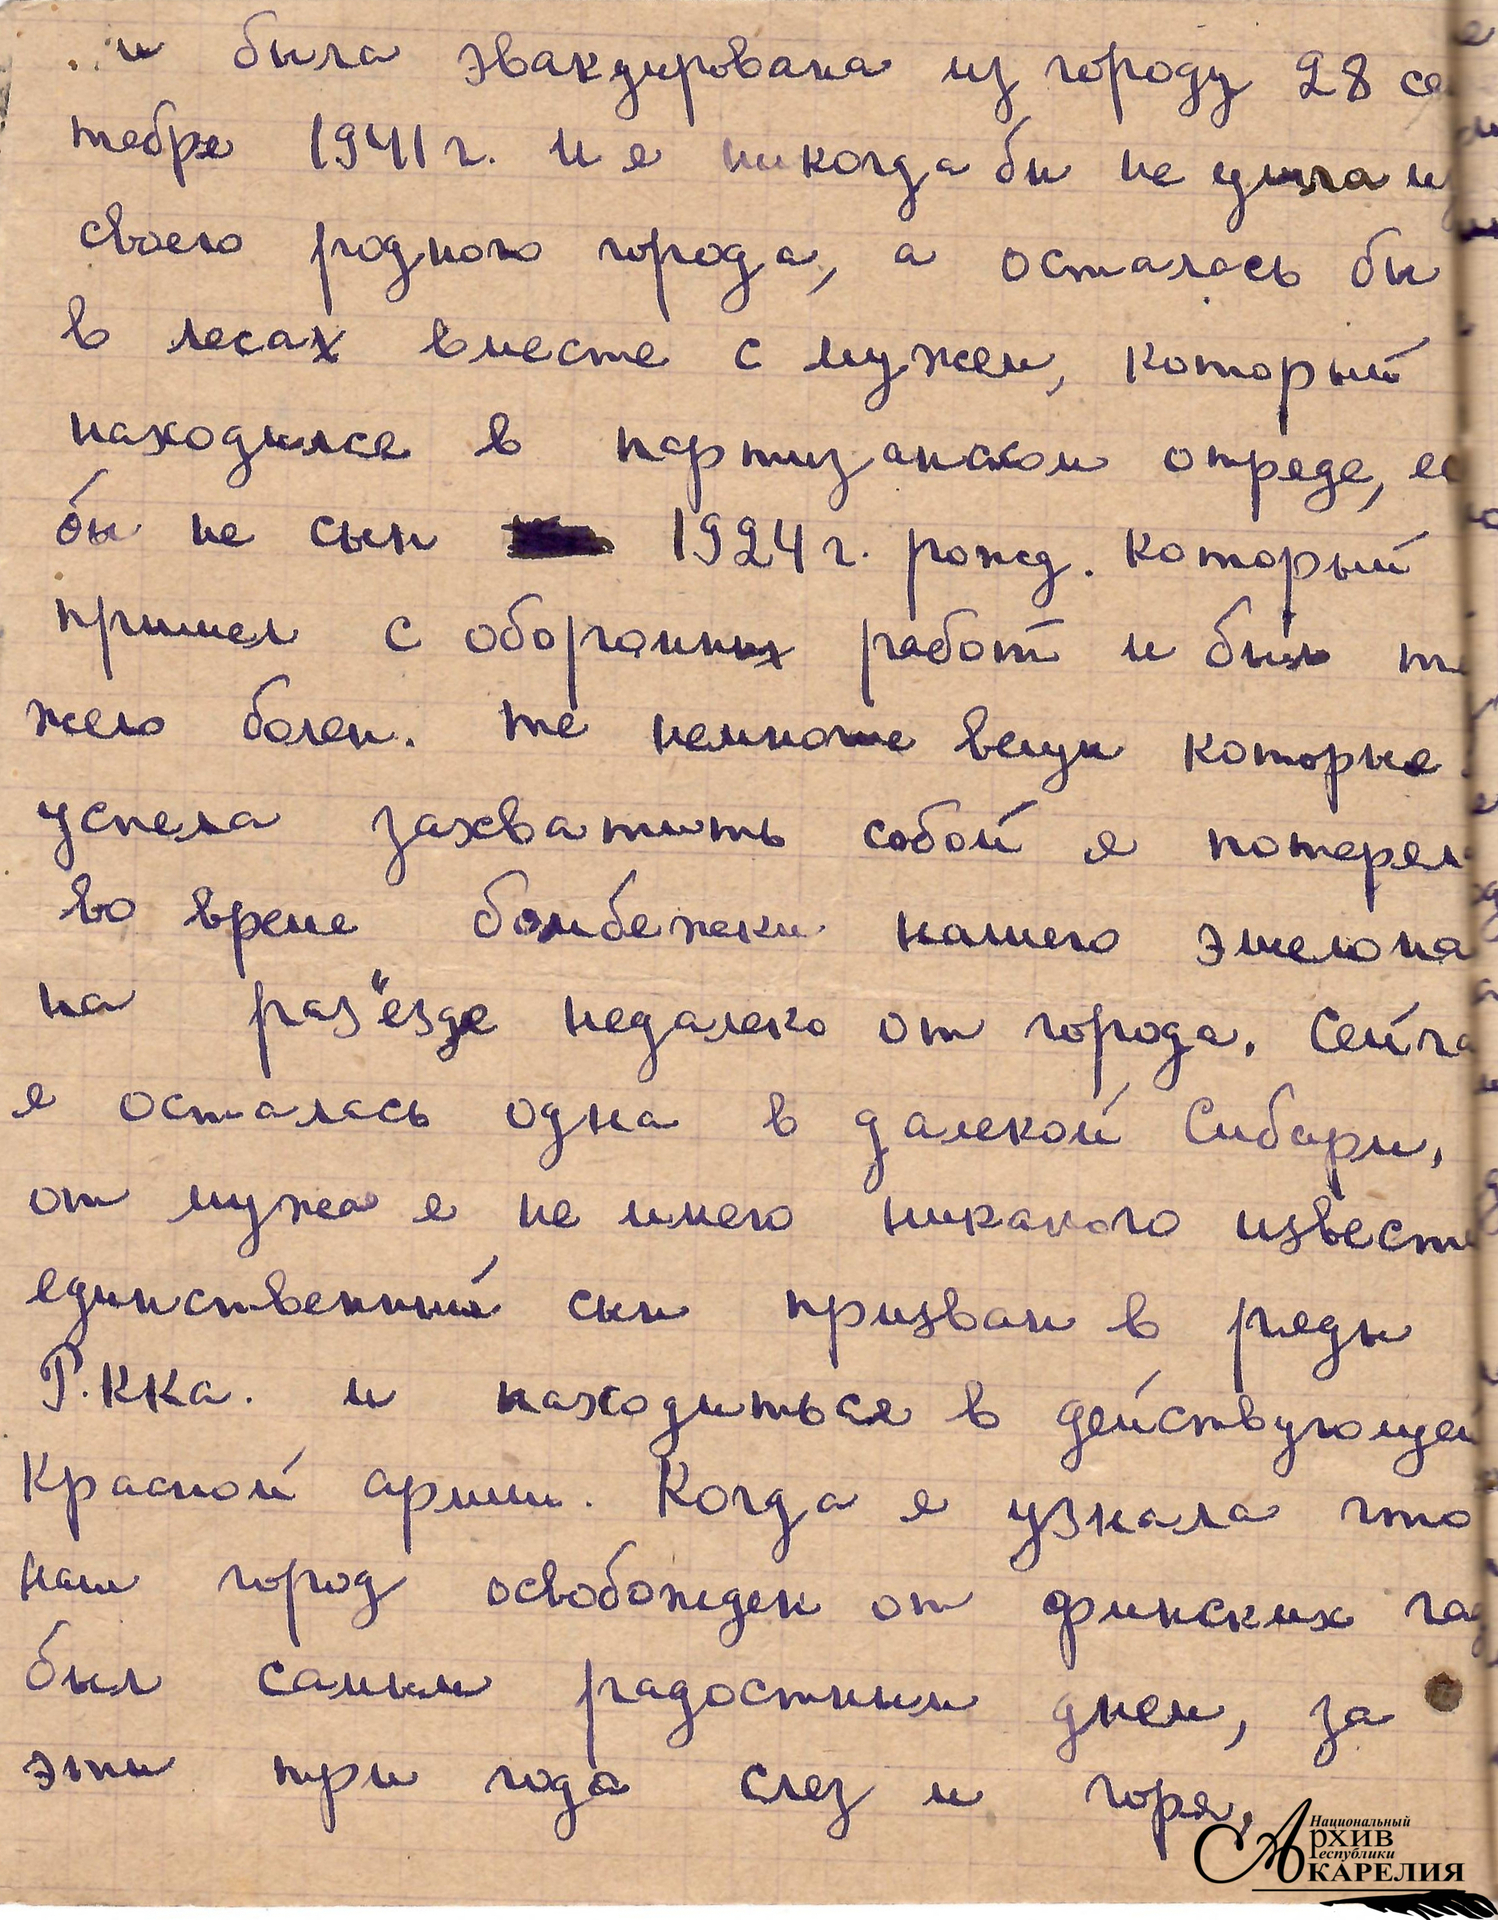 и была эвакуирована из городу 28 се
тября 1941 г. И я никогда бы не ушла из
своего родного города, а осталась бы
в лесах вместе с мужем, который
находился в партизанском отряде, ес
бы не сын 1924 г. рожд. который
пришел с оборонных работ и был тя
жело болен. те немногие вещи которые
успела захватить собой я потерял
во время бомбежеки нашего эшелона
на раз"езде недалеко от города. Сейча
я осталась одна в далекой Сибири,
от мужа я не имею никакого извест
единственный сын призван в ряды
Р.ККа. и находиться в действующей
Красной армии. Когда я узнала что
наш город освобожден от финских гад
был самым радостным днем, за
эти три года слез и горя.
Национальный
Архив
Республики
Карелия